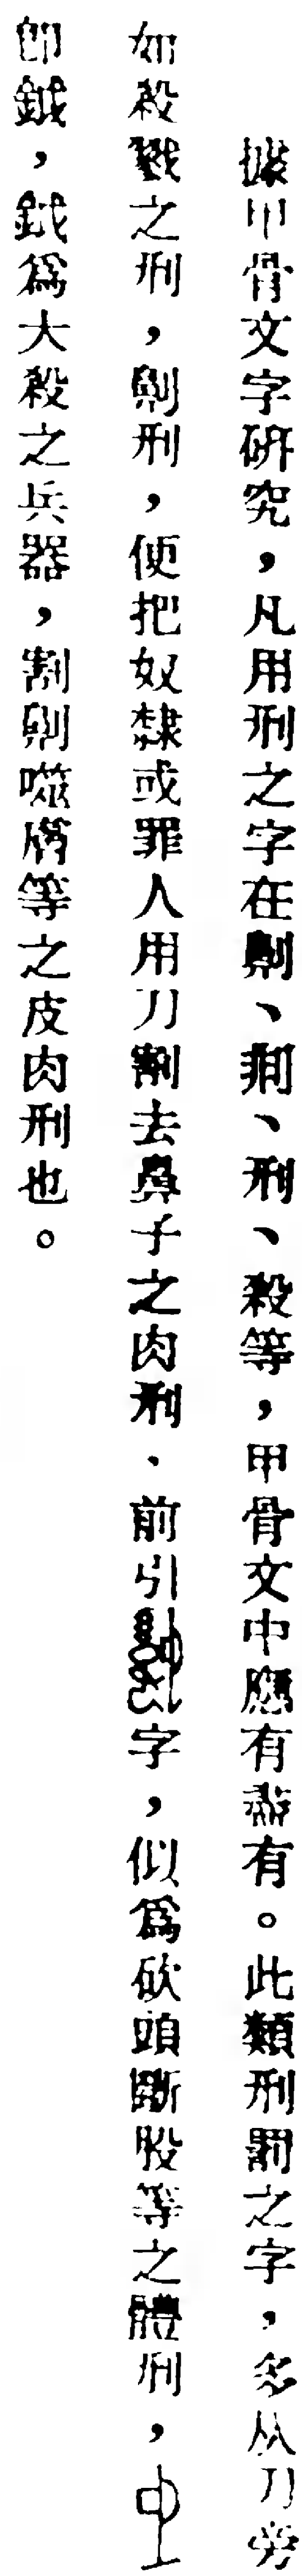 據甲骨文字研究，凡用刑之字在劓、刵、刑、殺等，甲骨文中應有盡有。此類刑罰之字，多从刀旁
如殺戮之刑，劓刑，便把奴隸或罪人用刀割去鼻子之肉刑．前引字，似為砍頭斷股等之體刑，
即鉞，鉞為大殺之兵器，割劓噬膚等之皮肉刑也。